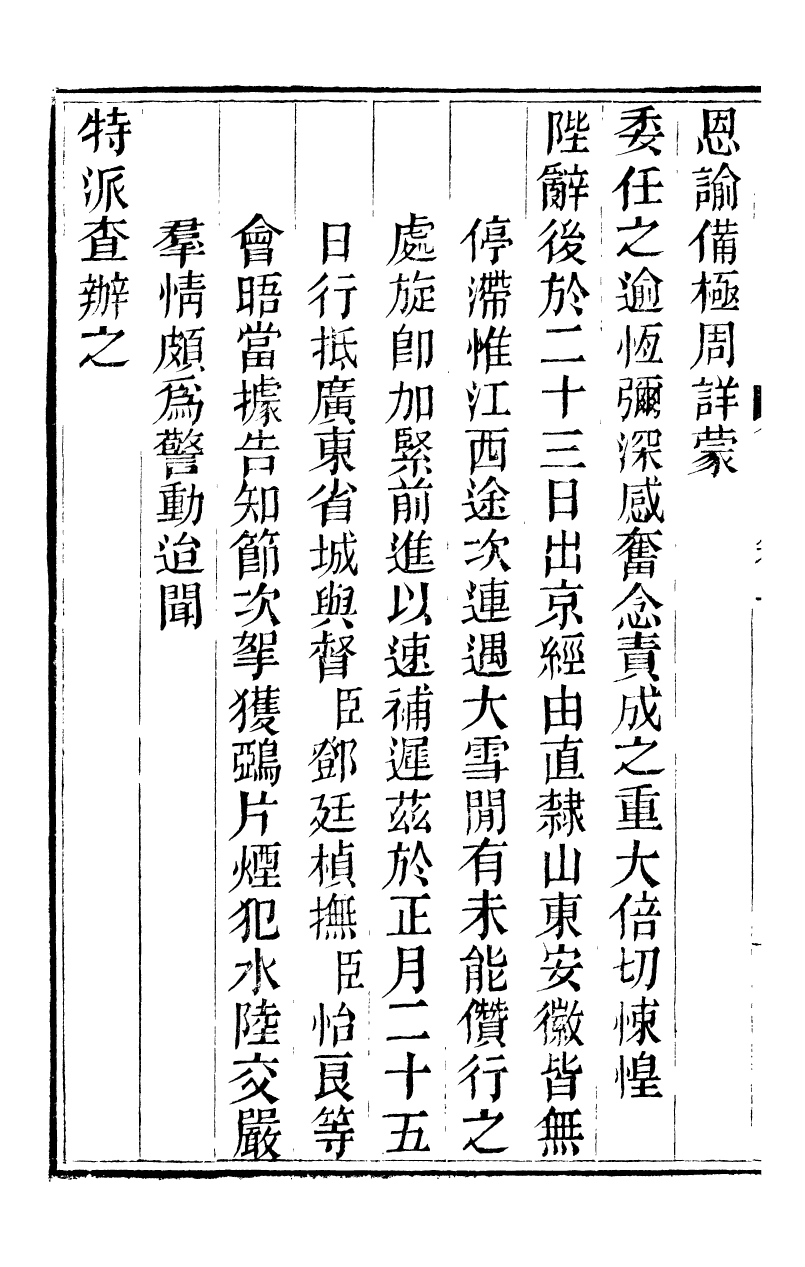 恩諭備極周詳蒙
委任之逾恆彌深感奮念責成之重大倍切悚惶
陛辭後於二十三日出京經由直隸山東安徽皆無
停滯惟江西途次連遇大雪閒有未能儹行之
處旋卽加緊前進以速補遲茲於正月二十五
日行抵廣東省城與督臣鄧廷楨撫臣怡良等
會晤當據告知節次拏獲鴉片煙犯水陸交嚴
羣情頗爲警動迨聞
特派查辦之